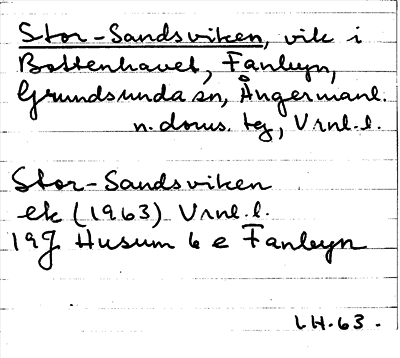 Stor-Sandsviken, vik i
Bottenhavet, Fanbyn,
Grundsunda sn, Ångermanl.
n. doms. tg, Vrnl. l.
Stor-Sandsviken
ek (1963) Vrnl. l.
19J Husum 6 e Fanbyn
LH.63.